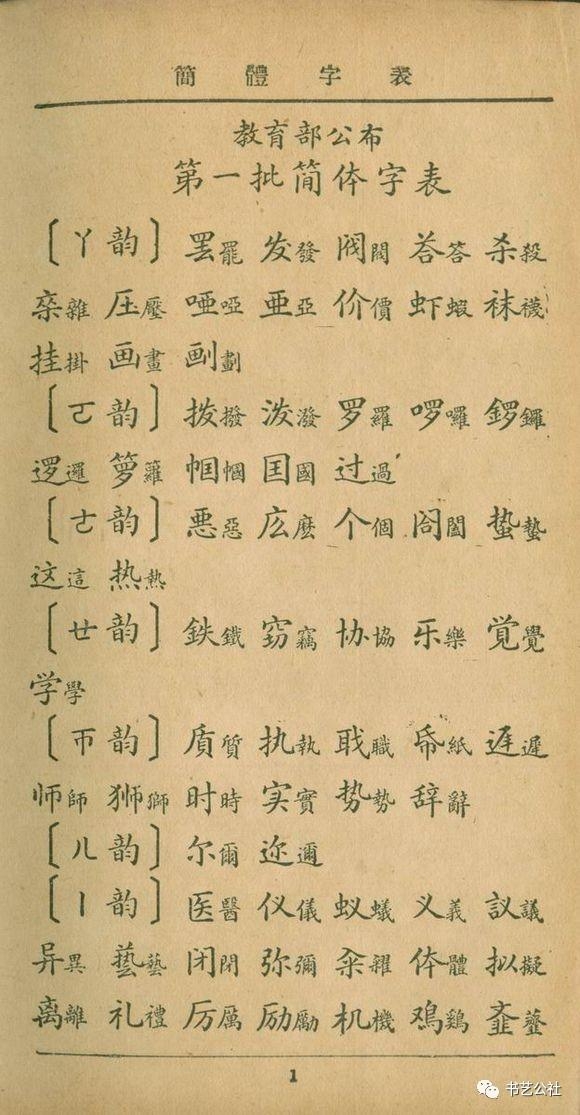 簡體字表
教育部公布
第一批简体字表
〔ㄚ韵〕 罢罷 发發 阀閥 荅答 杀殺
杂雜 压壓 哑啞 亜亞 价價 虾蝦 袜襪
挂掛 画畫 劃
〔ㄛ韵〕 拨撥 泼潑 罗羅 啰囉 锣鑼
逻邏 箩籮 帼幗 国國 过過
〔ㄜ韵〕 恶惡 庅麽 个個 阁閤 蛰蟄
这這 热熱
〔ㄝ韵〕 鉄鐵 窃竊 协協 乐樂 覚覺
学學
〔ㄭ韵〕 质質 执執 职職 帋紙 迟遲
师師 狮獅 时時 实實 势勢 辞辭
〔ㄦ韵〕 尔爾 迩邇
〔ㄧ韵〕 医醫 仪儀 蚁蟻 义義 議
异異 藝 闭閉 弥彌 籴糴 体體 拟擬
离離 礼禮 厉厲 励勵 机機 鸡鷄 齑虀
1
书艺公社